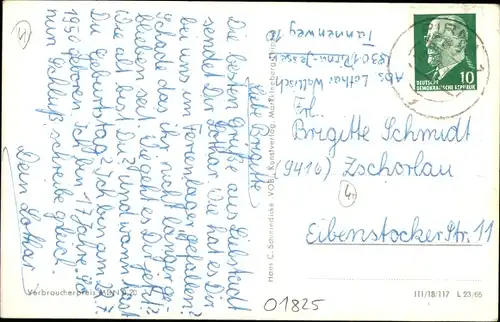 4
Liebe Brigitte
Die besten Grüße aus Eilstadt
sendet Dir Lothar. Wie hat es Dir
bei uns im Ferienlager gefallen?
Schade das ihr nicht länger ge-
blieben seit. Wie geht es Dir jetzt?
Wie alt bist Du? und wann hast
Du Geburtstag? Ich bin am 27.
1950 geboren. Ich bin 17 Jahre. So
nun Schluß. Schreibe gleich.
Dein Lothar
Abs. Lothar
8301
Tannenweg 10
PIRNA
10
DEUTSCHE
DEMOKRATISCHE REPUBLIK
Frl.
Brigitte Schmidt
(9416) Zschorlau
4
Eibenstocker Str. 11
Hans C. Schmiedicke VOB, Kunstverlag, Markkleeberg
Verbraucherpreis MDN 0,20
01825
III/18/117 L 23/65